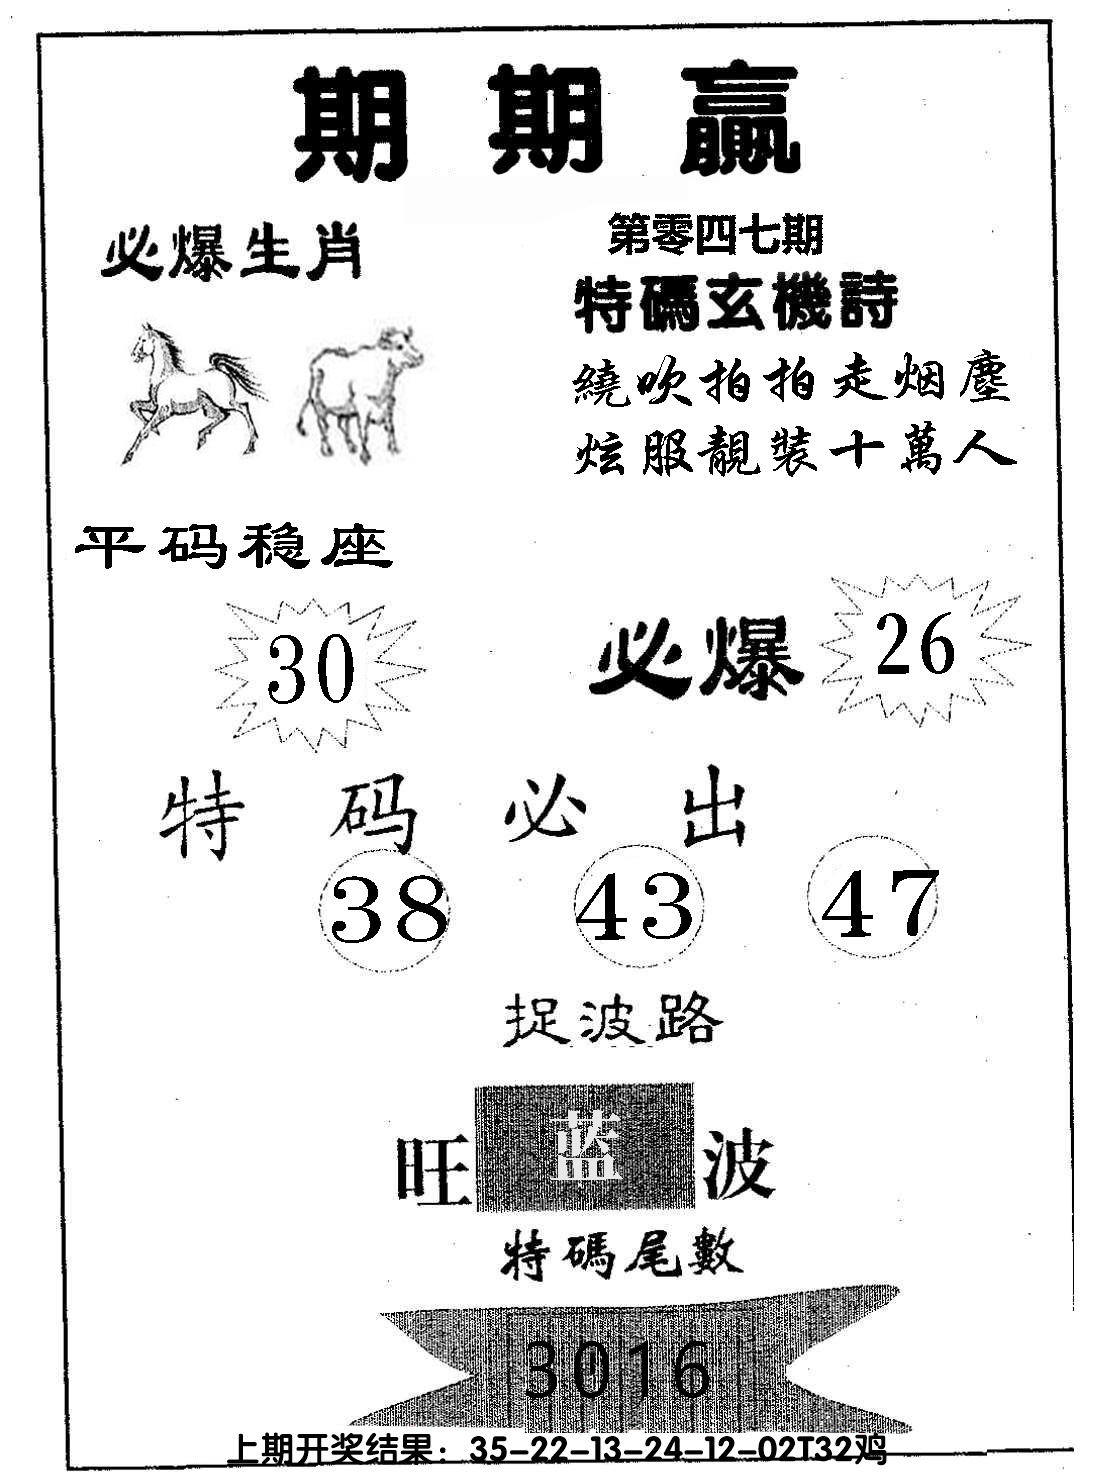 期期赢
必爆生肖
第零四七期
特碼玄機詩
繞吹拍拍走烟塵
炫服靚裝十萬人
平码稳座
30
必爆 26
特码必出
38 43 47
捉波路
旺蓝波
特碼尾數
3016
上期开奖结果：35-22-13-24-12-02T32鸡